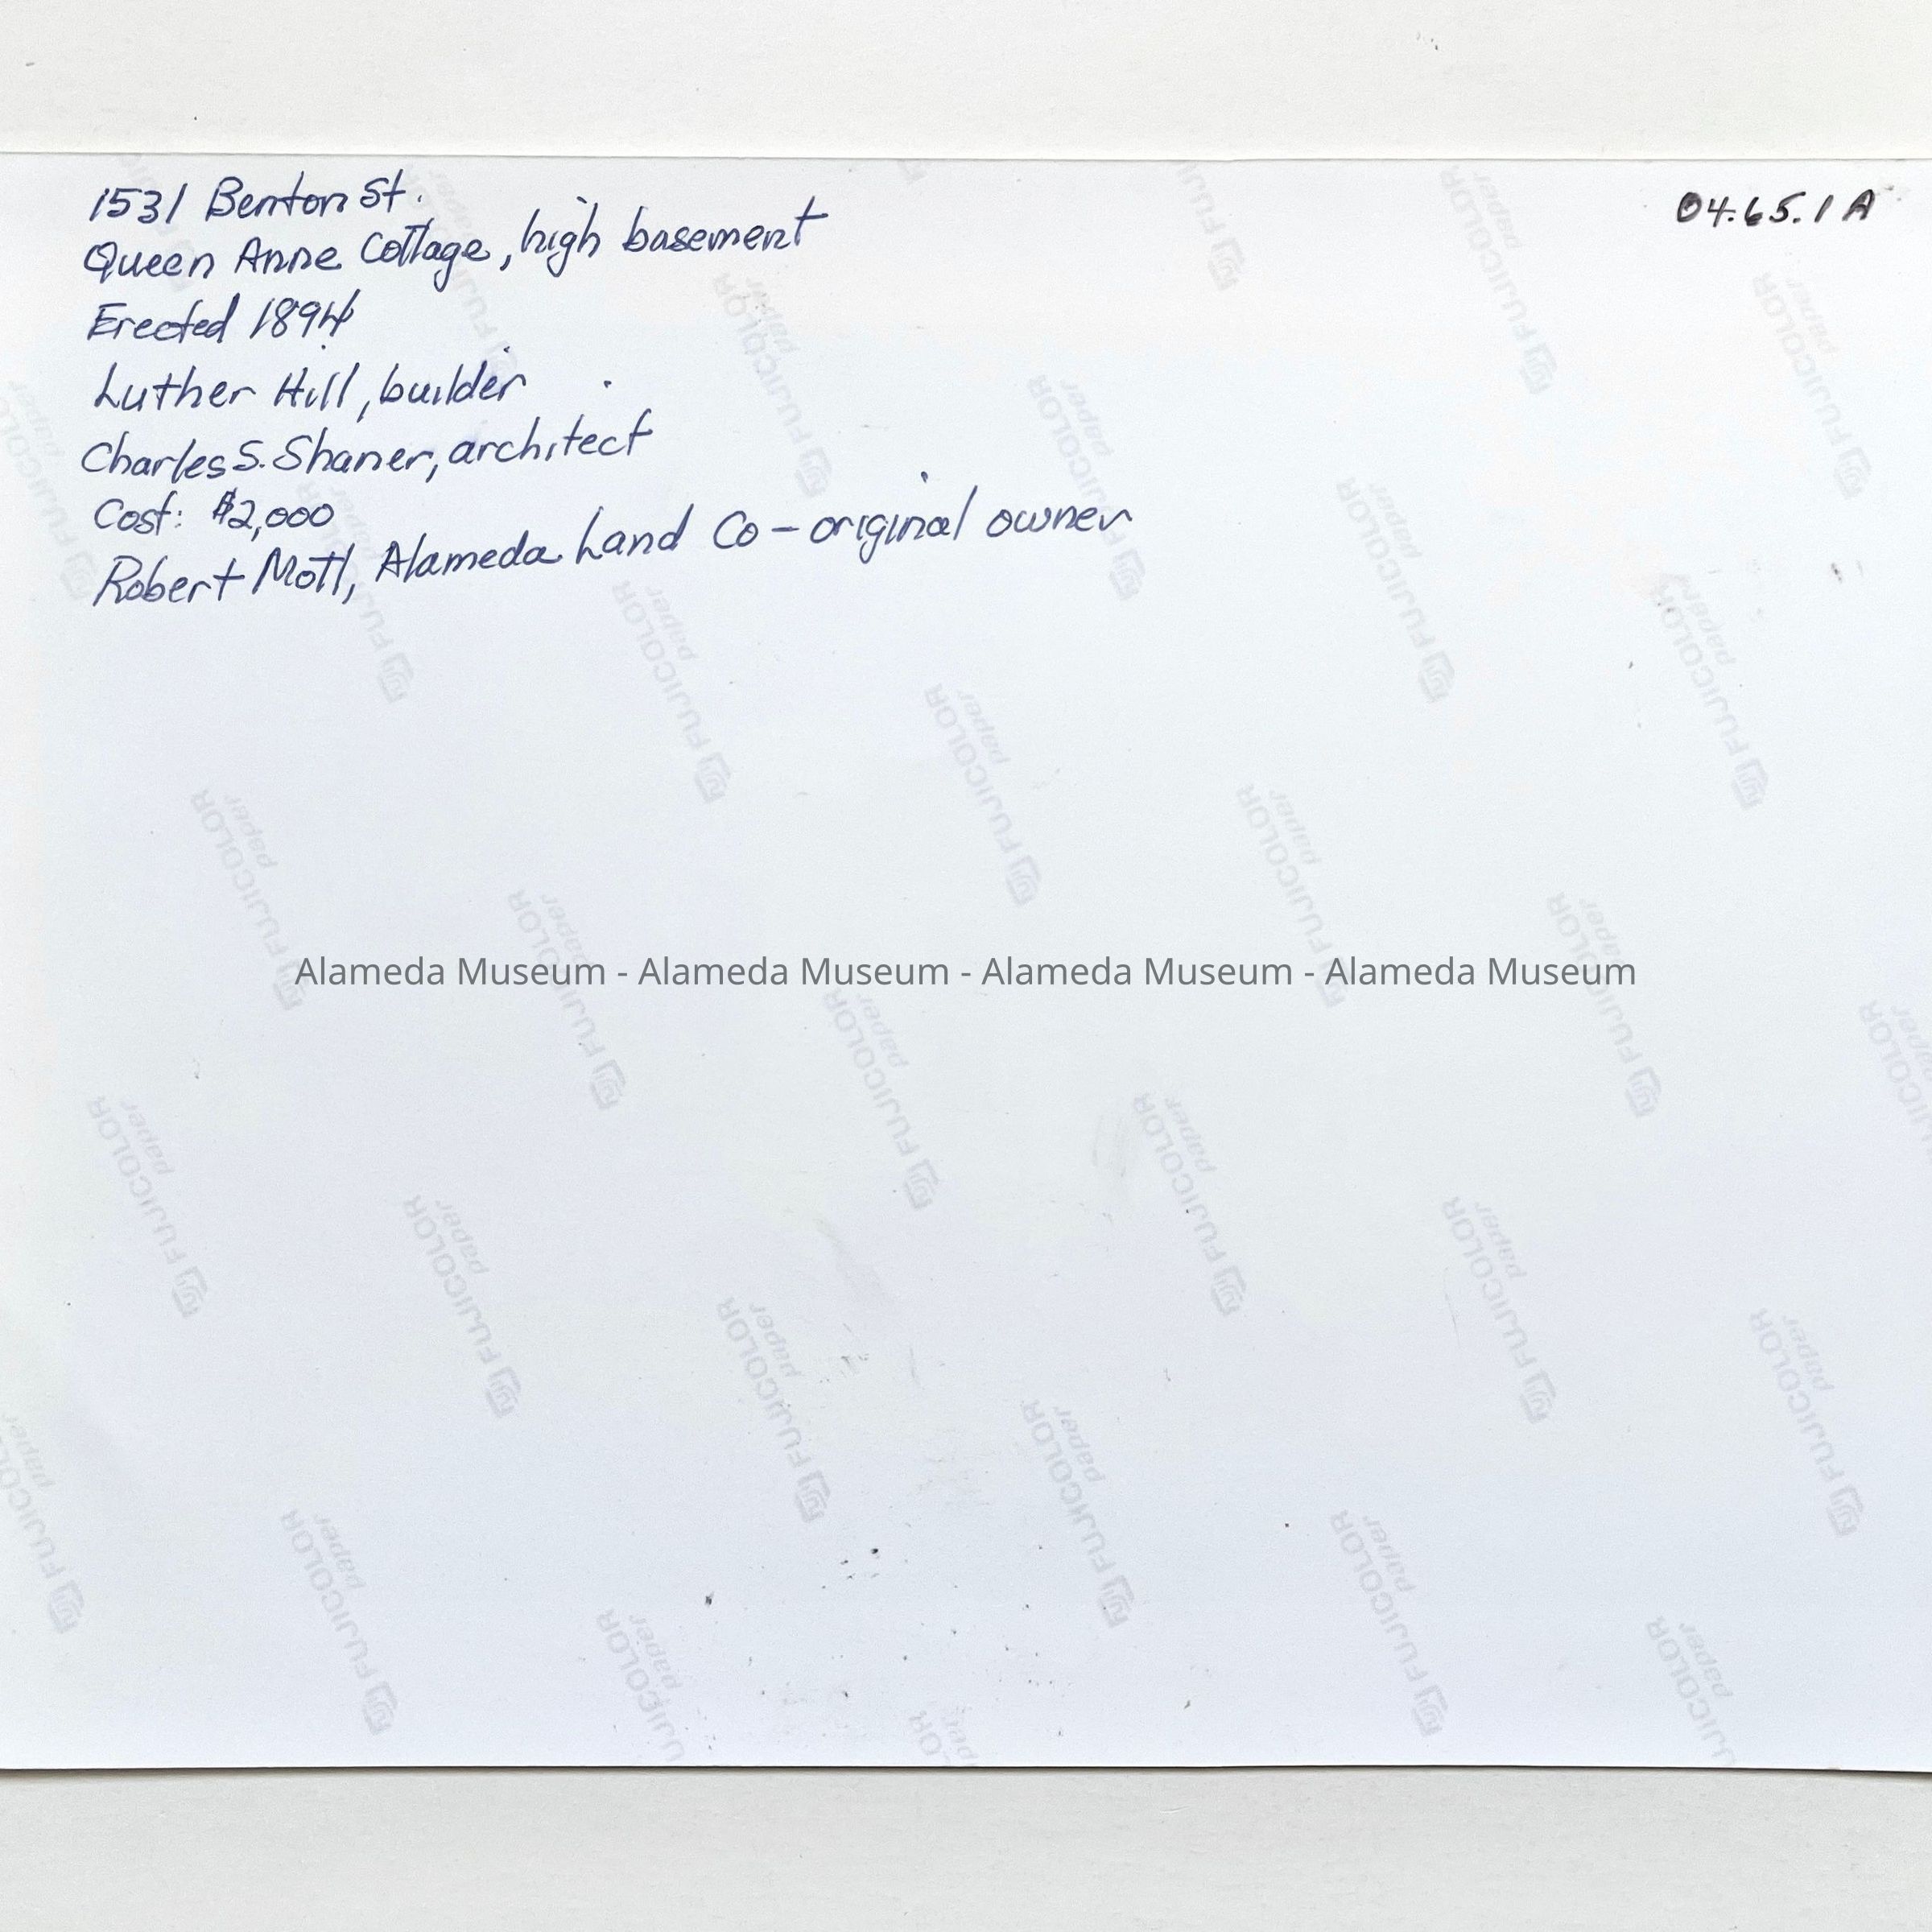 1531 Benton St.
04.65.1A
Queen Anne Cottage, high basement
Erected 1894
Luther Hill, builder
Charles S. Shaner, architect
Cost: $2,000
Robert Mott, Alameda Land Co - original owner
Alameda Museum - Alameda Museum - Alameda Museum - Alameda Museum
FUJICOLOR
paper